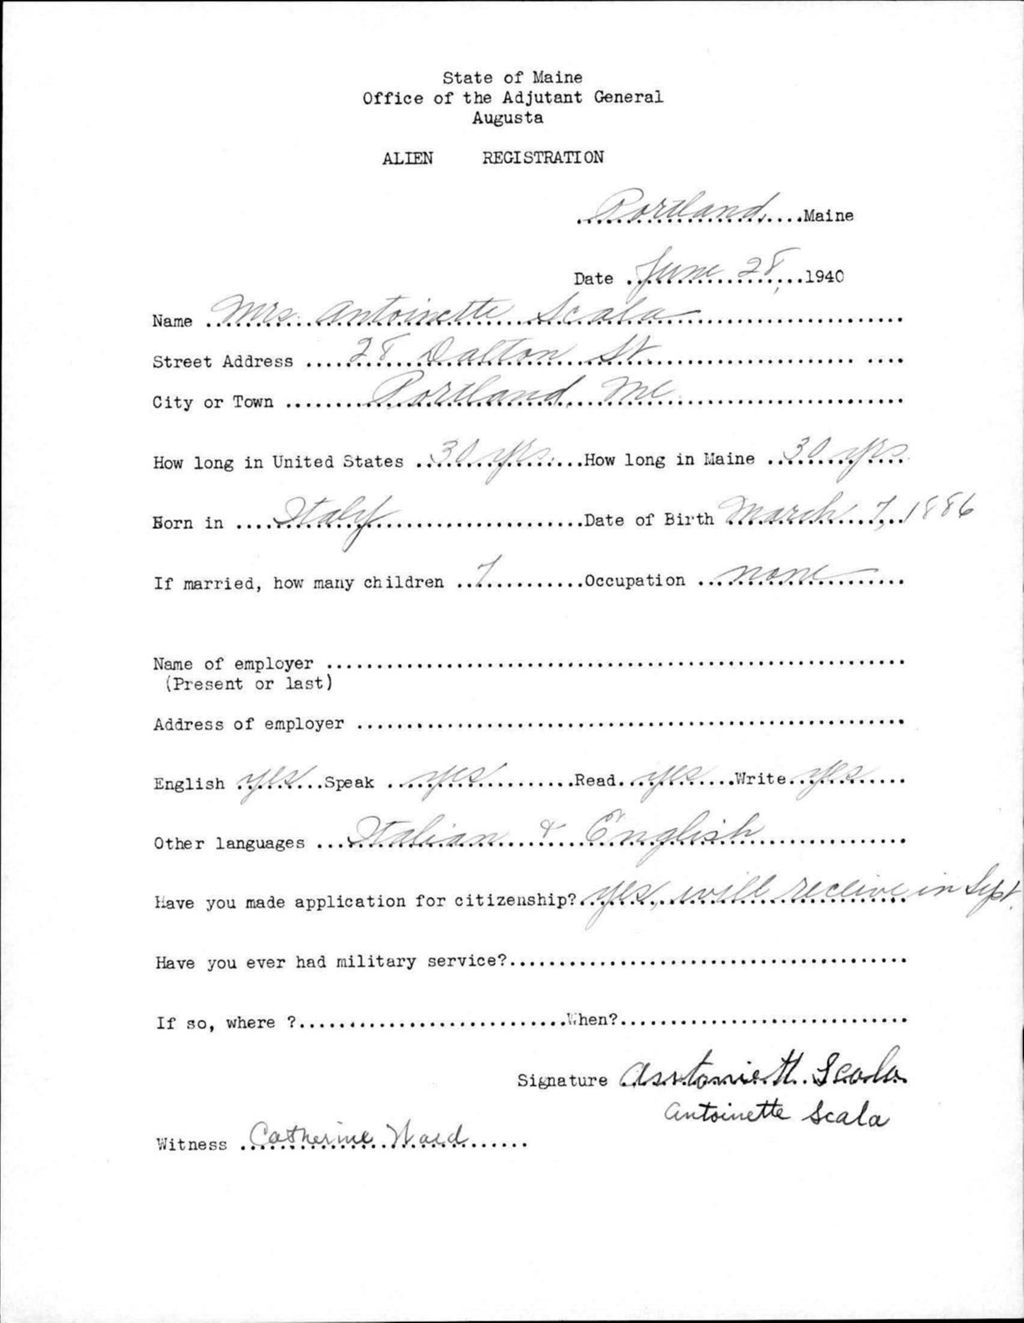 State of Maine
Office of the Adjutant General
Augusta
ALIEN REGISTRATION
Portland, Maine
Date June 28, 1940
Name Mrs. Antoinette Scala
Street Address 28 Dalton St.
City or Town Portland, Me.
How long in United States 30 yrs. How long in Maine 30 yrs.
Born in Italy Date of Birth March 7, 1886
If married, how many children 7 Occupation none
Name of employer
(Present or last)
Address of employer
English yes Speak yes Read yes Write yes
Other languages Italian & English
Have you made application for citizenship? yes, will receive in Sept.
Have you ever had military service?
If so, where ? When?
Signature Antoniett Scala
Antoinette Scala
Witness Catherine Ward